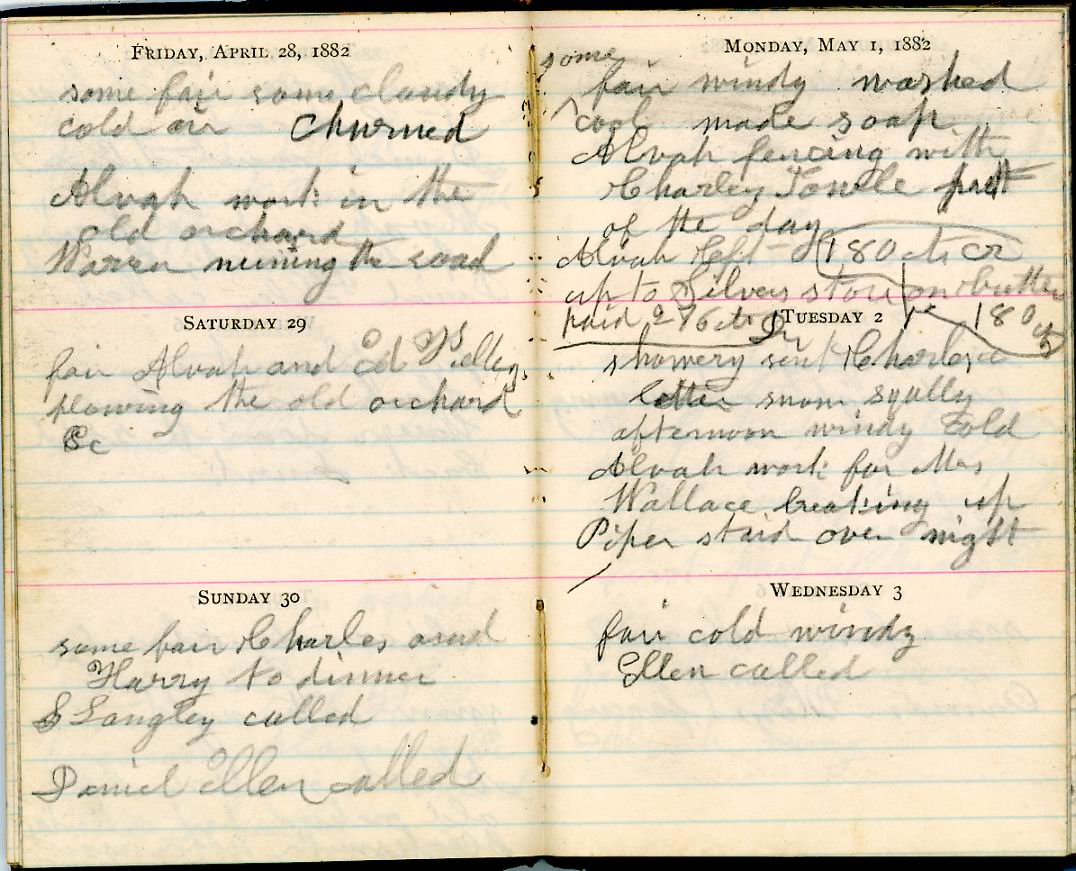 FRIDAY, APRIL 28, 1882
some fair some cloudy
cold air Churned
Alvah work in the
old orchard
Warren running the road
SATURDAY 29
fair Alvah and Ed
plowing the old orchard
&c
SUNDAY 30
some fair Charles and
Harry to dinner
S Langley called
Daniel Ellen called
MONDAY, MAY 1, 1882
some
fair windy washed
cool made soap
Alvah fencing with
Charley Towle part
of the day
Alvah left 180 cts cr
up to Silvers store on butter
paid 276 cts Dr 180 cts
TUESDAY 2
showery sent Charles a
letter snow sqully
afternoon windy Cold
Alvah work for Mrs
Wallace breaking up
Piper staid over night
WEDNESDAY 3
fair cold windy
Ellen called